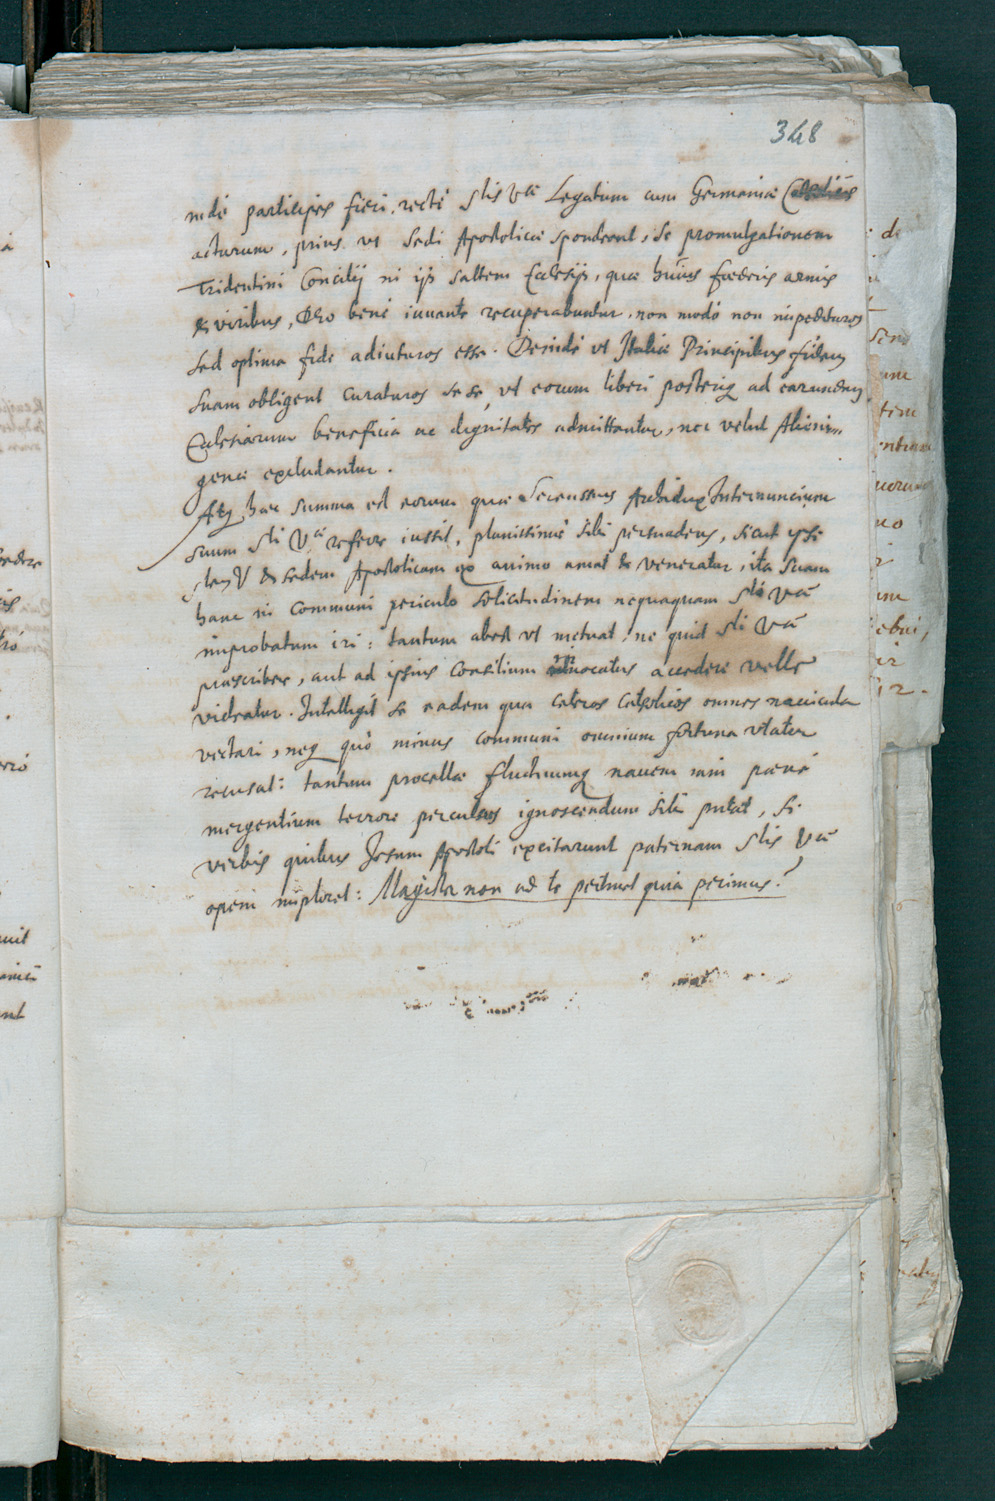 348
indè participes fieri. rectè Stis Vae Legatum cum Germaniae
acturum, prius vt Sedi Apostolicae spondeant, se promulgationem
Tridentini Concilij in ijs saltem Ecclesijs, quae huius foederis armis
& viribus, Deo benè iuuante recuperabuntur, non modò non impedituros
sed optima fide adiuturos esse. Deindè vt Italiae Principibus fidem
suam obligent curaturos sese, vt eorum liberi posteriq ad earundem
Ecclesiarum beneficia ac dignitates admittantur, nec velut Alieni-
genae excludantur.
Atq haec summa est eorum quae Serenissimus Archidux Internuncium
suum Sti Vae referre iussit, planissimè sibi persuadens, sicut ipse
Stem V & sedem Apostolicam ex animo amat & veneratur, ita suam
hanc in communi periculo solicitudinem nequaquam Sti Vae
improbatum iri: tantum abest vt metuat, ne quid Sti Vae
praescribere, aut ad ipsius Consilium inuocatus accedere velle
videatur. Intelligit se eadem qua caeteros Catholicos omnes nauicula
vectari, neq quò minus communi omnium fortuna vtatur
recusat: tantum procellae fluctuumq nauem iam paenè
mergentium terrore perculsus ignoscendum sibi putat, si
verbis quibus Iesum Apostoli excitarunt paternam Stis Vae
opem imploret: Magister non ad te pertinet quia perimus?